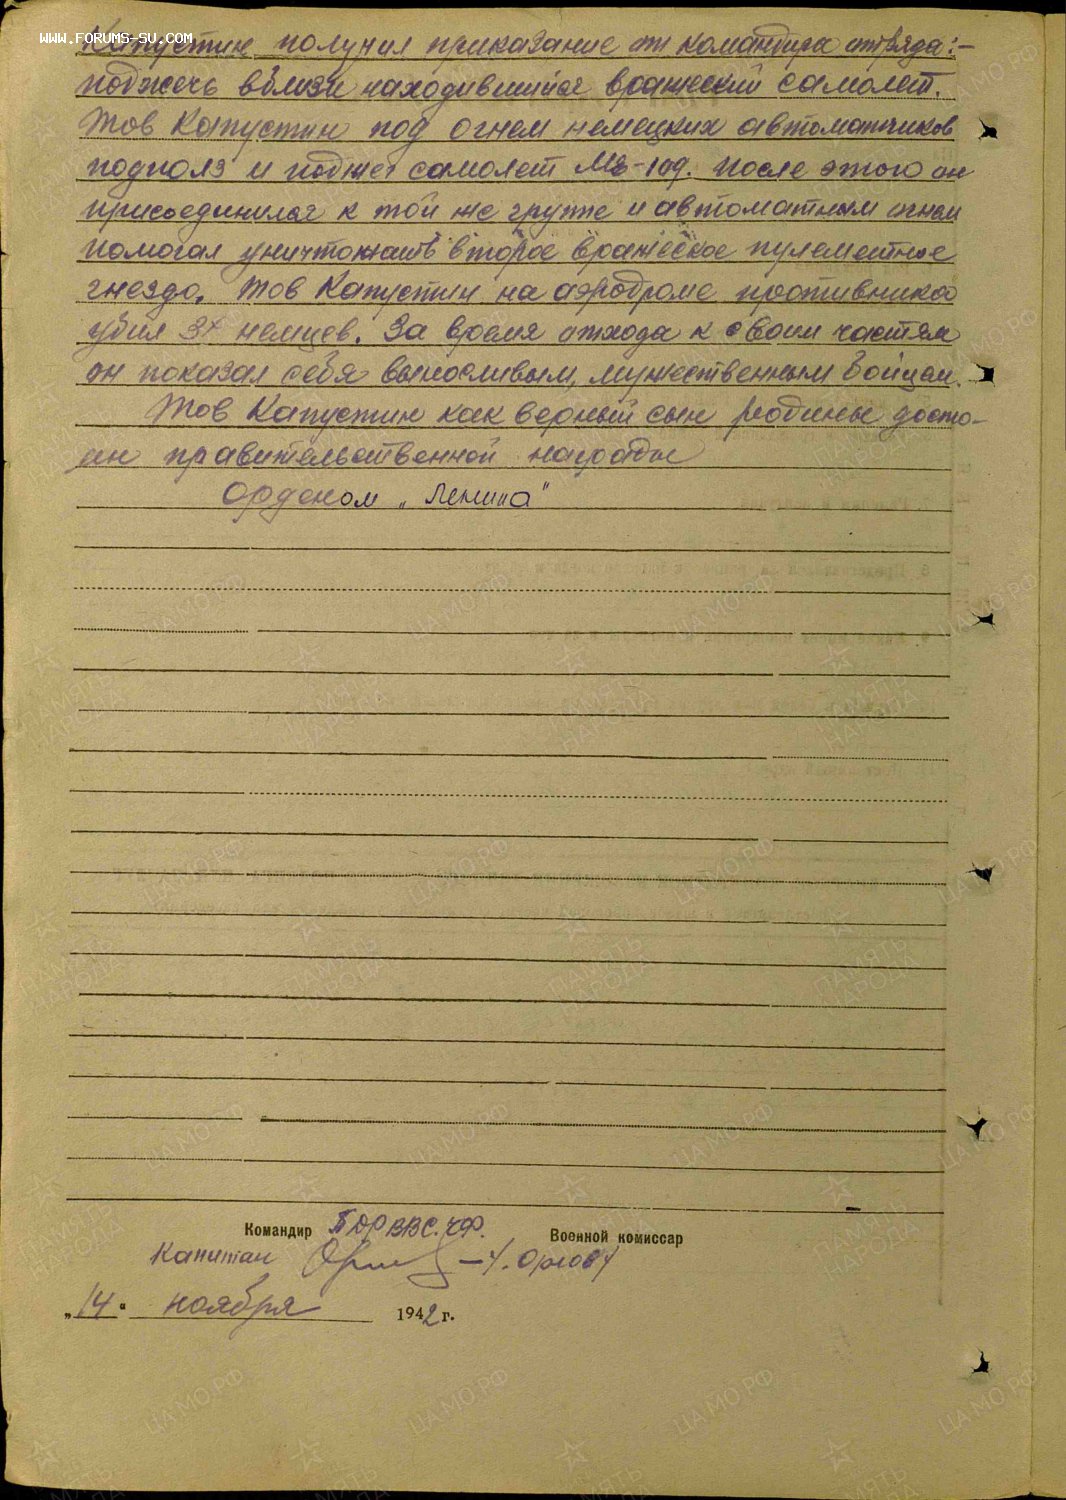 WWW.FORUMS-SU.COM
Капустин получил приказание от командира отряда:-
поджечь вблизи находившийся вражеский самолет.
Тов Капустин под огнем немецких автоматчиков
подполз и поджег самолет МЕ-109. После этого он
присоединился к той же группе и автоматным огнем
помогал уничтожать второе вражеское пулеметное
гнездо. Тов Капустин на аэродроме противника
убил 3х немцев. За время отхода к своим частям
он показал себя выносливым, мужественным бойцом.
Тов Капустин как верный сын родины досто-
ин правительственной награды
орденом „Ленина"
Командир ВВС. ЧФ. Военной комиссар
Капитан Орлов
„14" ноября 1942 г.
ПАМЯТЬ НАРОДА
ЦАМО.РФ